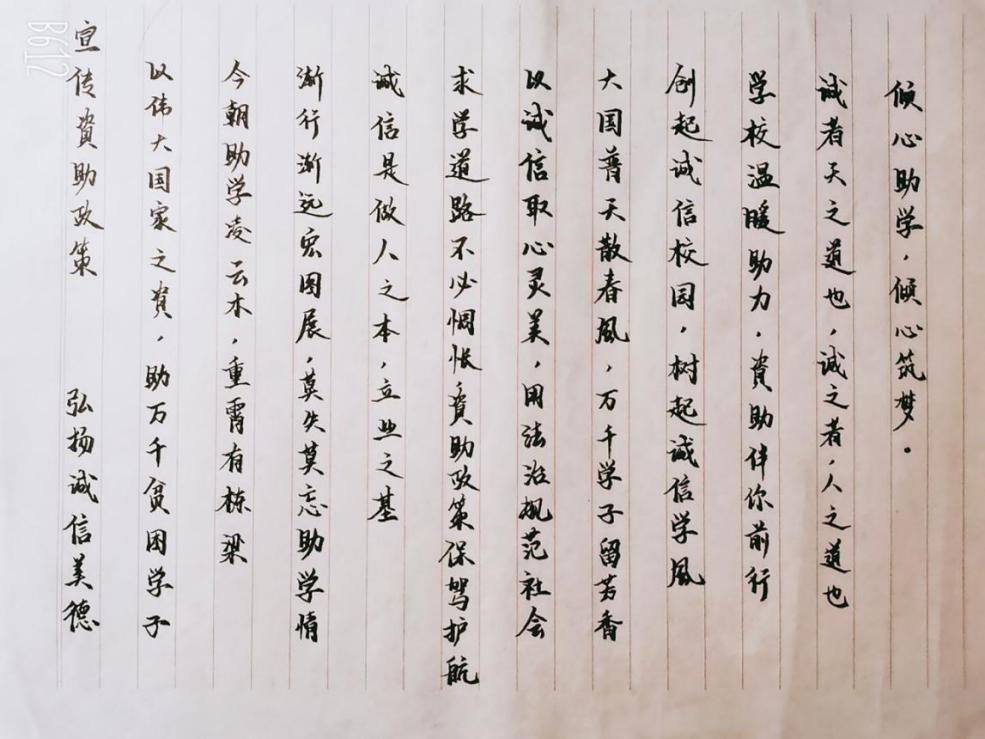 倾心助学，倾心筑梦.
诚者天之道也，诚之者，人之道也
学校温暖助力，資助伴你前行
创起诚信校园，树起诚信学風
大国普天散春風，万千学子留芳香
以诚信取心灵美，用法治规范社会
求学道路不必惆怅，資助政策保驾护航
诚信是做人之本，立业之基
渐行渐远宏图展，莫失莫忘助学情
今朝助学凌云木，重霄有栋梁
以伟大国家之資，助万千贫困学子
宣传資助政策 弘扬诚信美德
B612